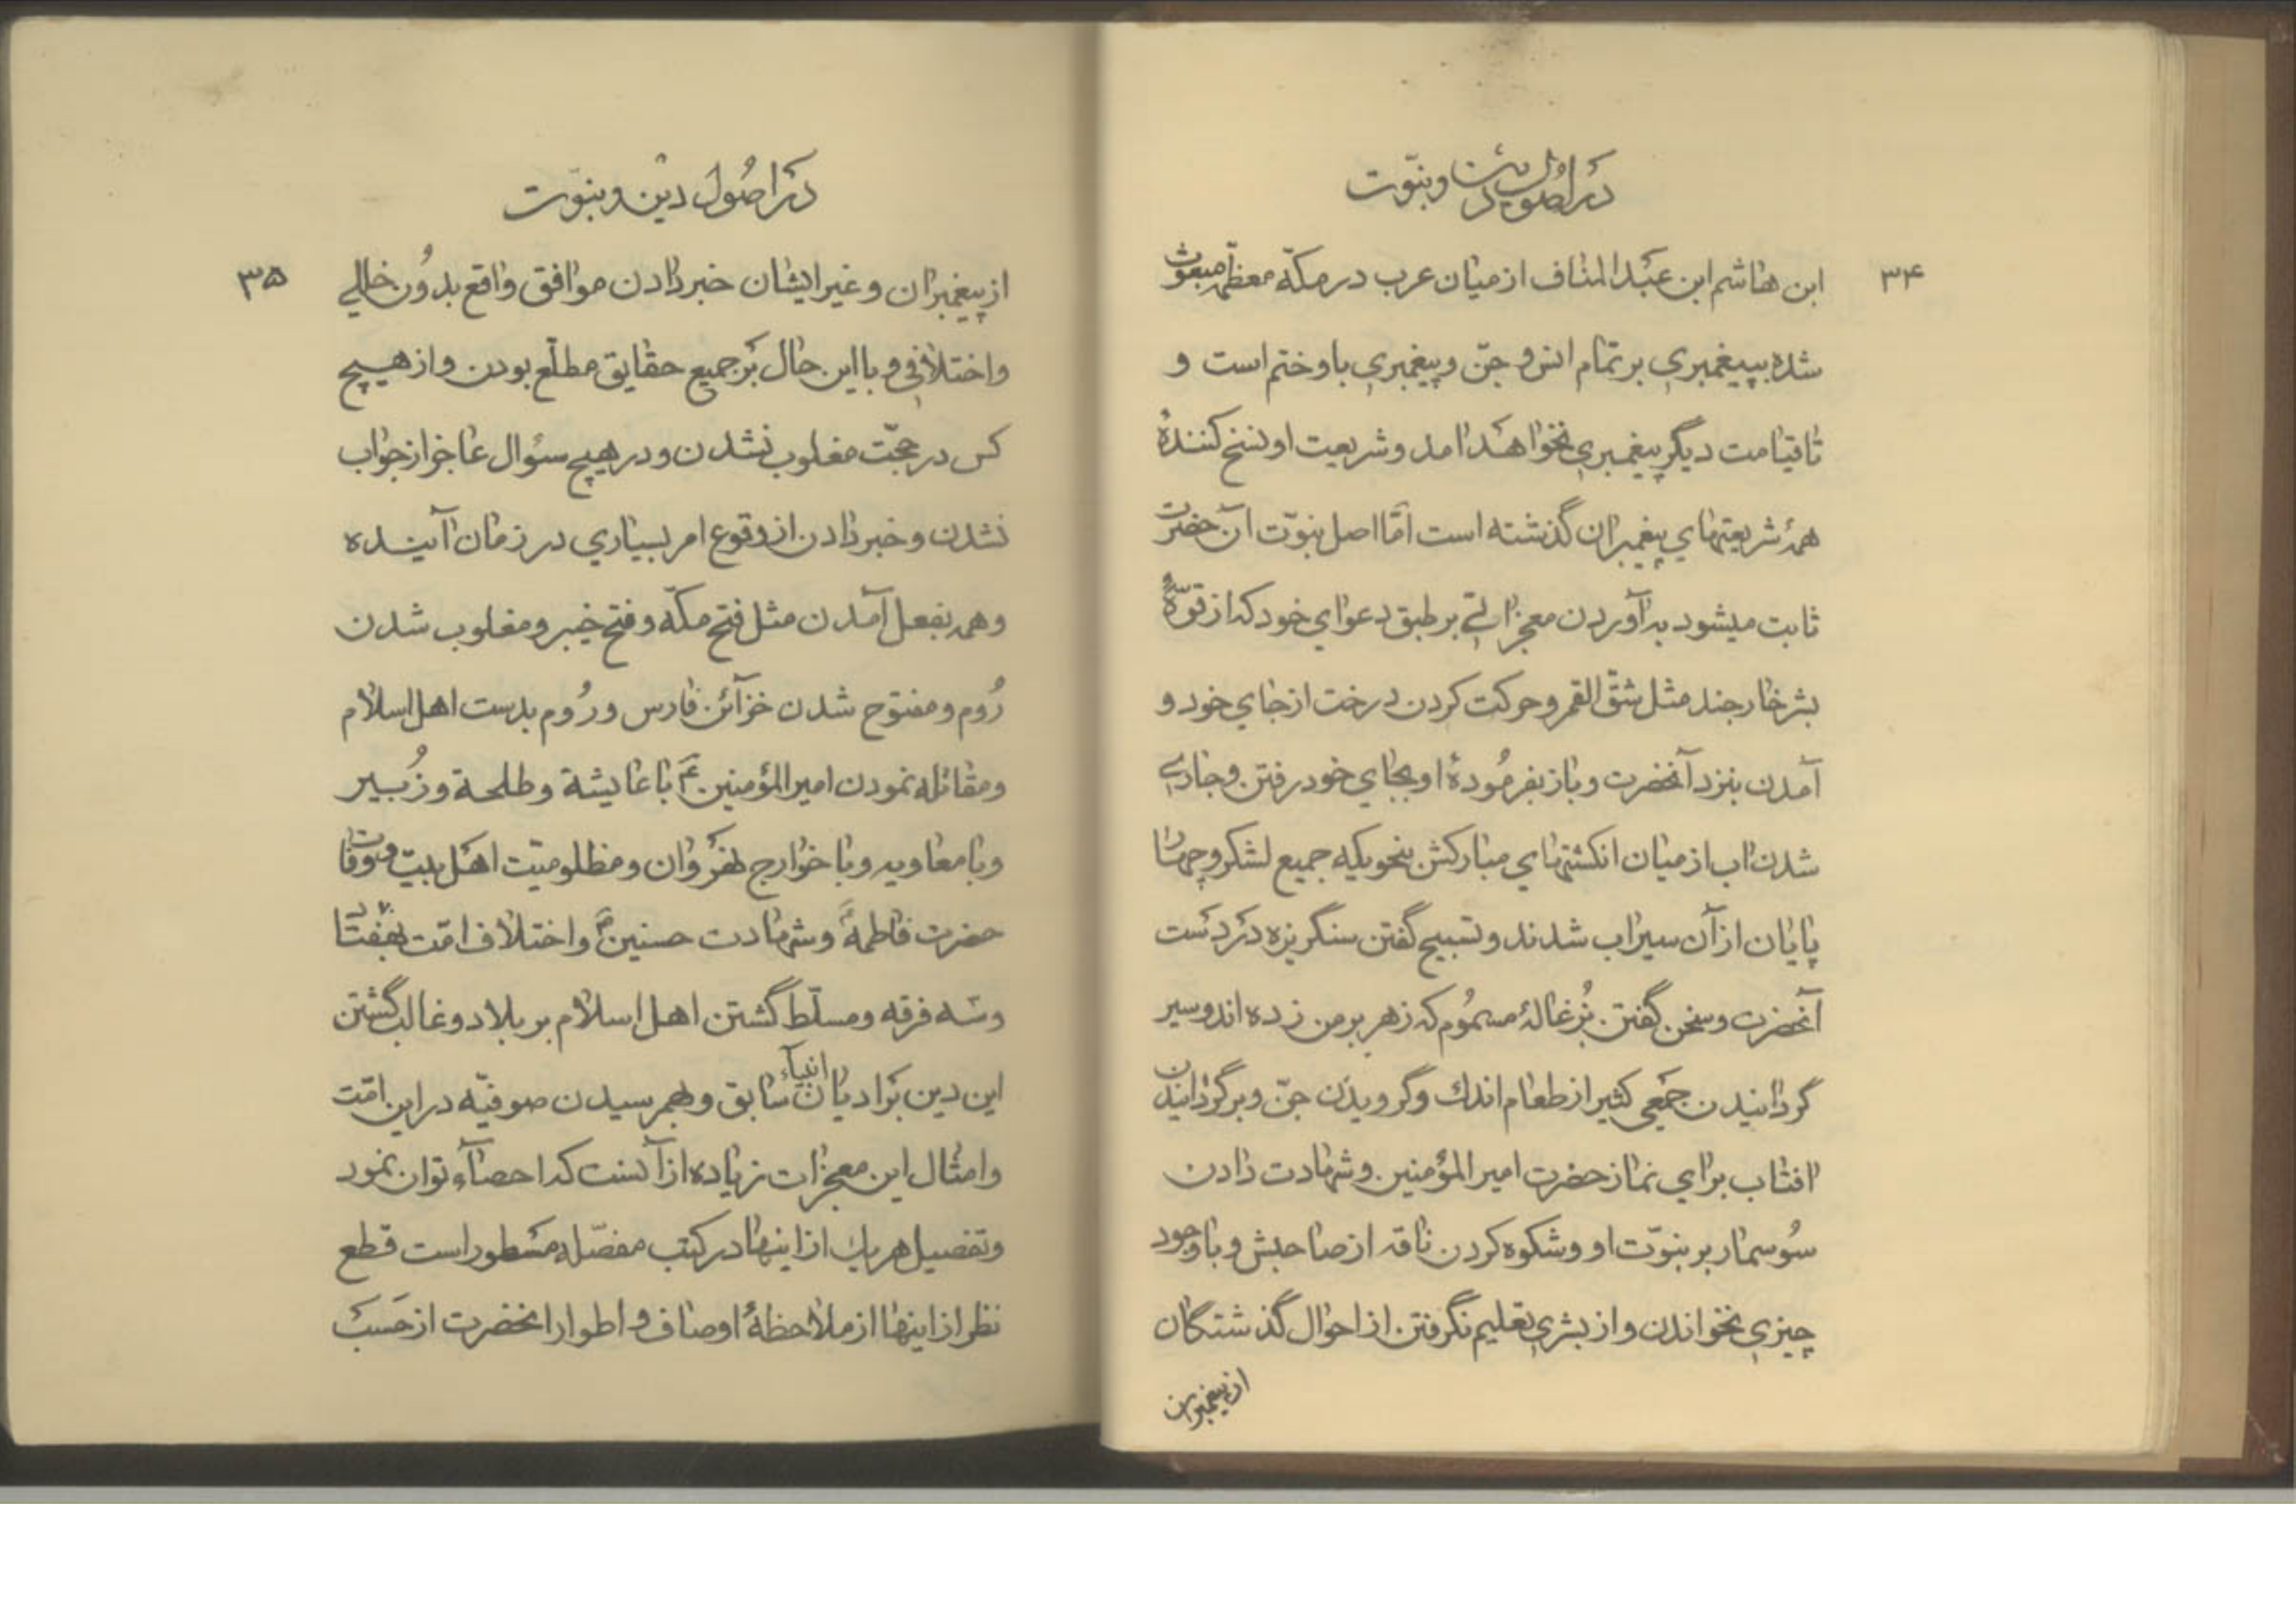 در اصول دین و نبوّت
۳۴
ابن هاشم ابن عبد المناف از میان عرب در مکّه معظّمه مبعوث
شده بپیغمبري بر تمام انس و جنّ و پیغمبري باو ختم است و
تا قیامت دیگر پیغمبري نخواهد امد و شریعت او نسخ کنندهٔ
همهٔ شریعتهاي پیغمبران گذشته است امّا اصل نبوّت آن حضرت
ثابت میشود به آوردن معجزاتي بر طبق دعواي خود که از قوّهٔ
بشر خارجند مثل شقّ القمر و حرکت کردن درخت از جاي خود و
آمدن بنزد آنحضرت و باز بفرمُودهٔ او بجاي خود رفتن و جاري
شدن اب از میان انکشتهاي مبارکش بنحویکه جمیع لشکر و چهار
پایان از آن سیراب شدند و تسبیح گفتن سنگریزه در دست
آنحضرت و سخن گفتن بُزغالهٔ مسمُوم که زهر بر من زده اند و سیر
گردانیدن جمعي کثیر از طعام اندك و گرویدن جنّ و برگردانیدن
افتاب براي نماز حضرت امیر المؤمنین و شهادت دادن
سُوسمار بر نبوّت او و شکوه کردن ناقه از صاحبش و با وجود
چیزي نخواندن و از بشري تعلیم نگرفتن از احوال گذشتگان
از پیغمبران
در اصُول دین و نبوّت
۳۵
از پیغمبران و غیر ایشان خبر دادن موافق واقع بدُون خللي
و اختلافي و با این حال بر جمیع حقایق مطلّع بودن و از هیچ
کس در حجّت مغلوب نشدن و در هیچ سؤال عاجز از جواب
نشدن و خبر دادن از وقوع امر بسیاري در زمان آینده
و همه بفعل آمدن مثل فتح مکّه و فتح خیبر و مغلوب شدن
رُوم و مفتوح شدن خزآئن فارس و رُوم بدست اهل اسلام
و مقاتله نمودن امیر المؤمنین ع با عایشة و طلحة و زُبیر
و با معاویه و با خوارج نهروان و مظلومیّت اهل بیت و وفات
حضرت فاطمهٔ و شهادت حسنین ع و اختلاف امّت بهفتاد
و سه فرقه و مسلّط گشتن اهل اسلام بر بلاد و غالب گشتن
این دین بر ادیان انبیآء سابق و بهم رسیدن صوفیّه در این امّت
و امثال این معجزات زیاده از آنست که احصآء توان نمود
و تفصیل هر یك از اینها در کتب مفصّله مسطور است قطع
نظر از اینها از ملاحظهٔ اوصاف و اطوار انحضرت از حسب